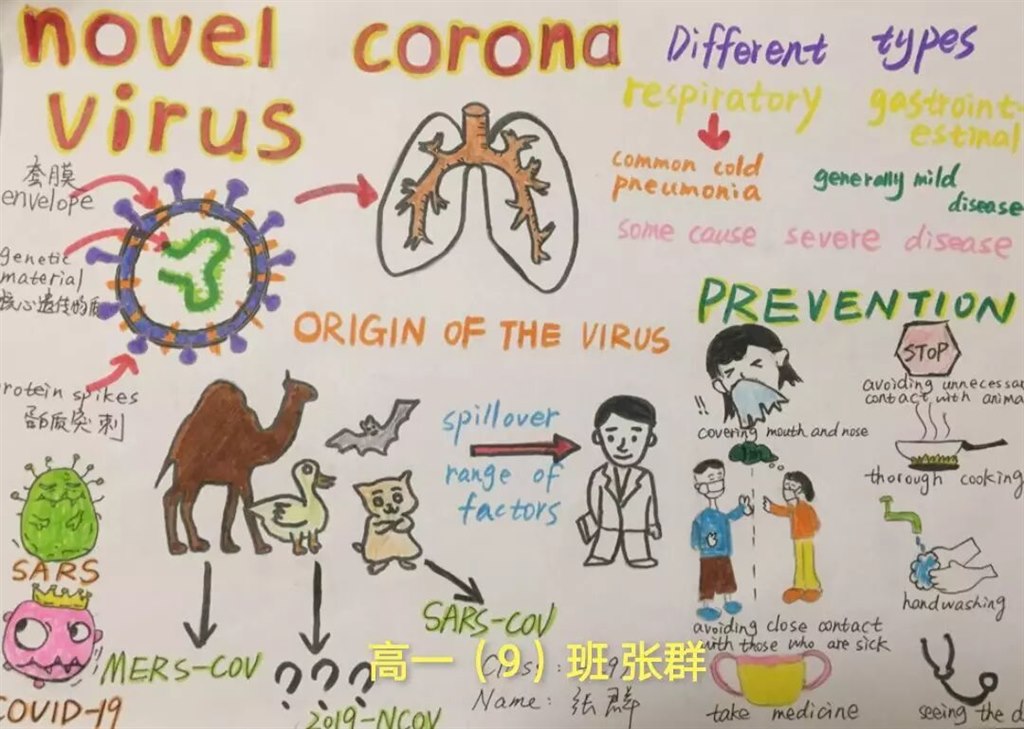 novel corona
virus
Different types
respiratory
gastroint-
estinal
common cold
pneumonia
generally mild
disease
some cause severe disease
envelope
genetic
material
rotein spikes
ORIGIN OF THE VIRUS
PREVENTION
STOP
avoiding unnecessa
contact with anima
covering mouth and nose
thorough cooking
spillover
range of
factors
handwashing
avoiding close contact
with those who are sick
take medicine
seeing the d
SARS
COVID-19
MERS-COV
???
2019-NCOV
SARS-COV
高一（9）班张群
Name: 张群